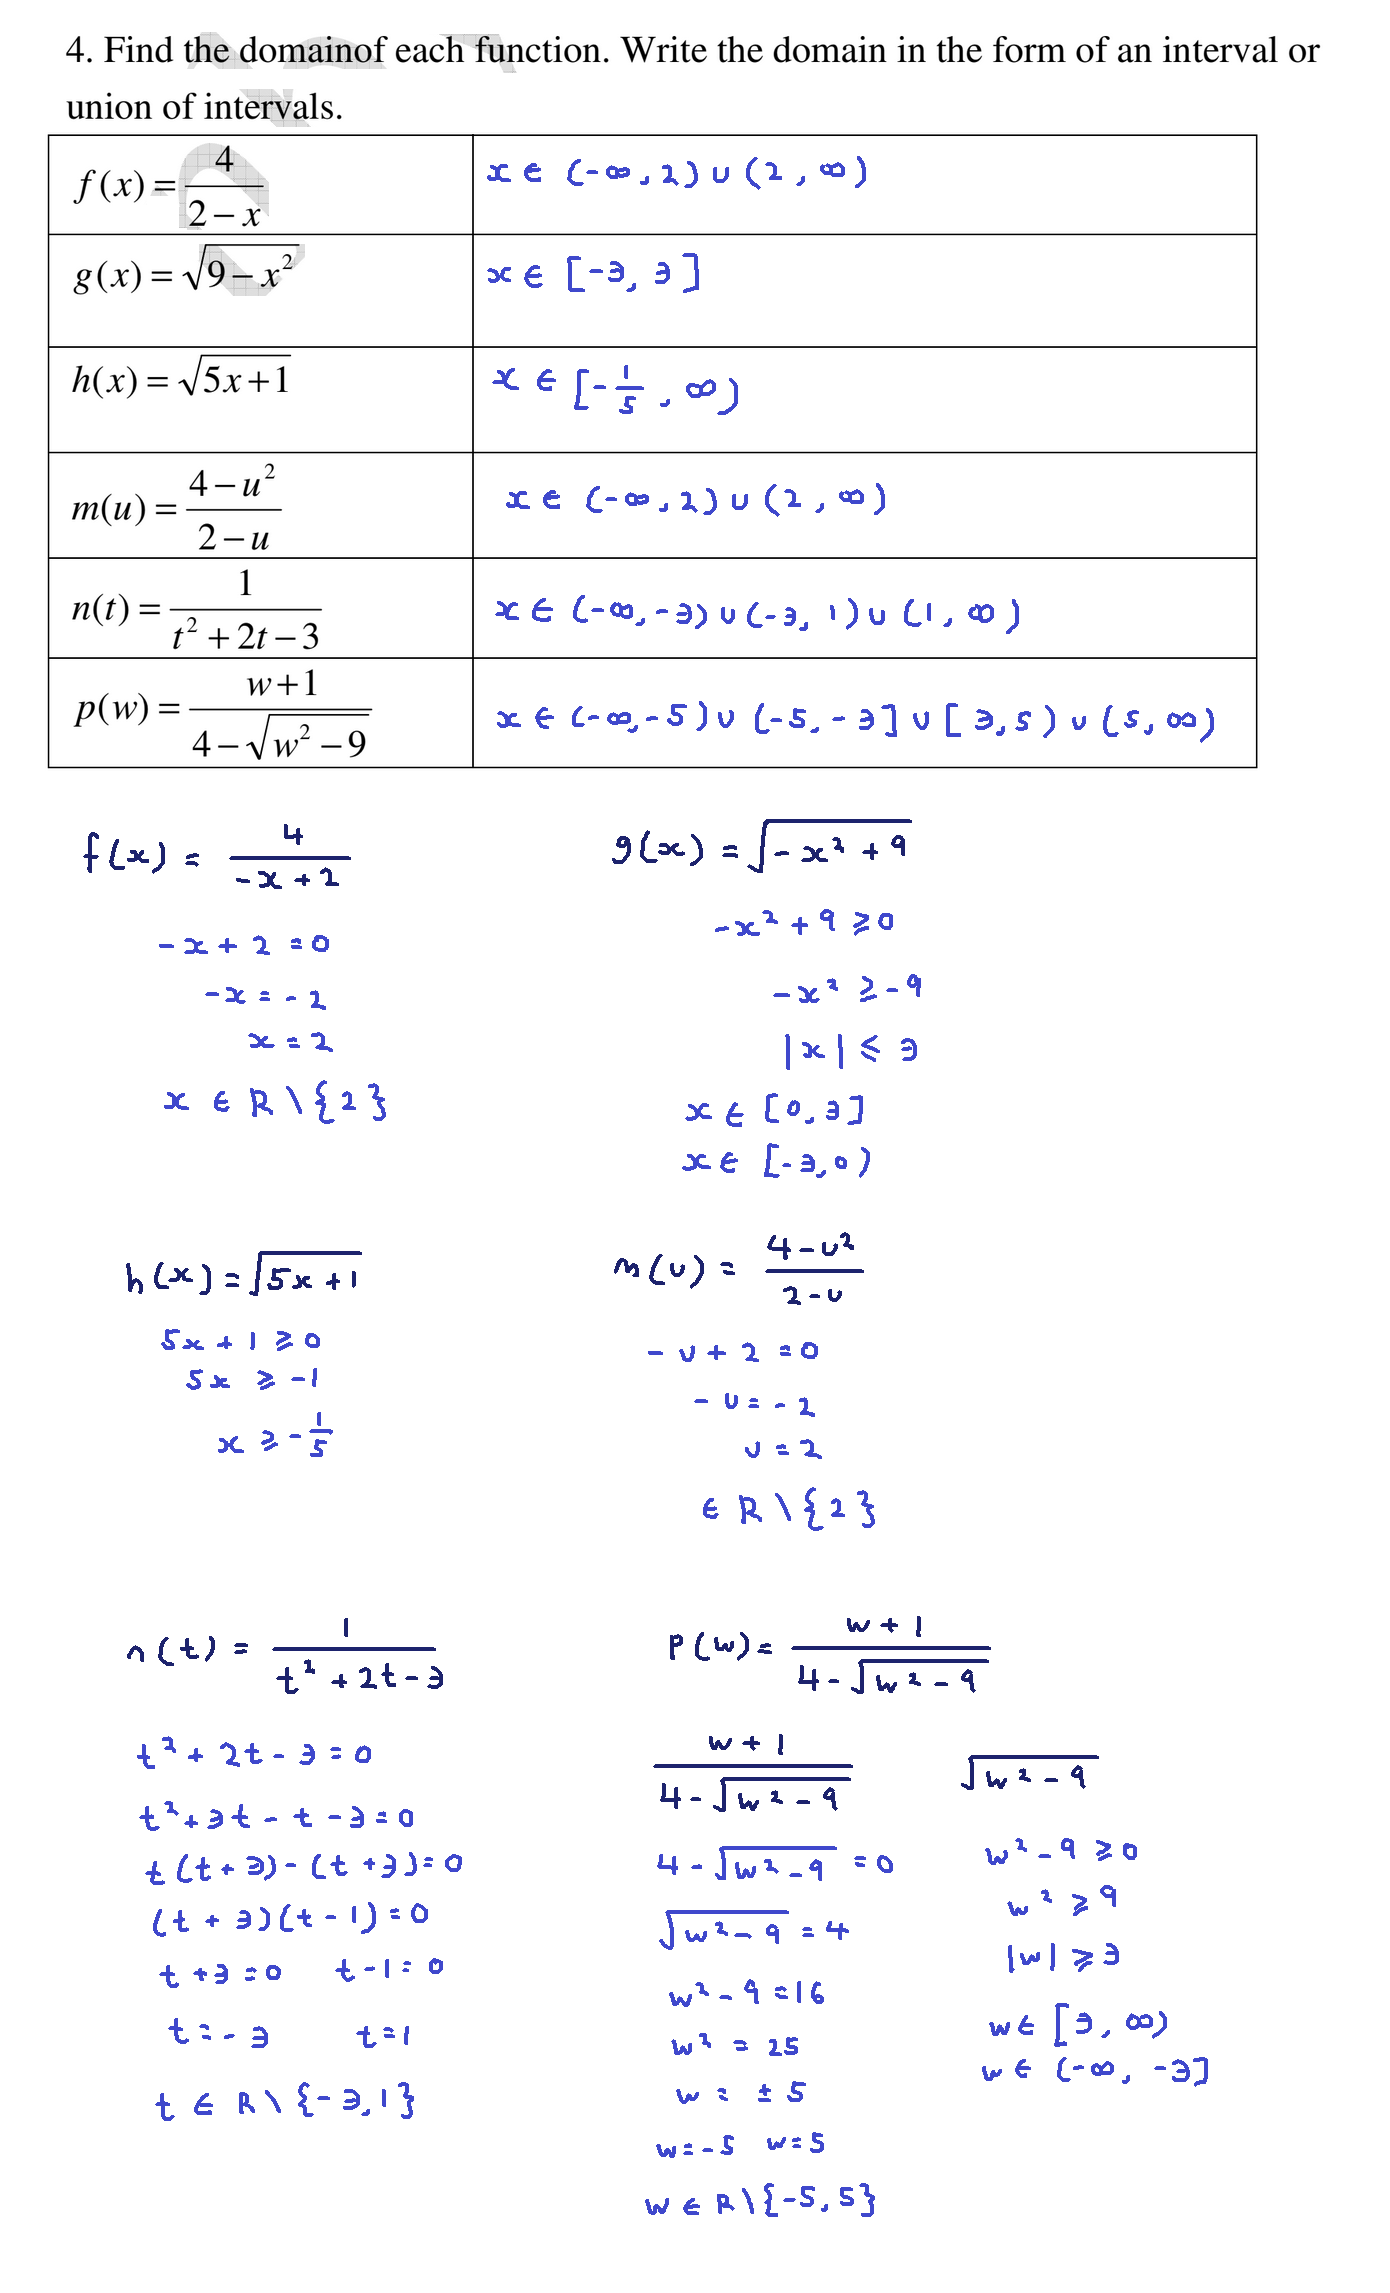 4. Find the domainof each function. Write the domain in the form of an interval or
union of intervals.
f(x) = 4/(2 − x)
x ∈ (-∞, 2) ∪ (2, ∞)
g(x) = √(9 − x²)
x ∈ [-3, 3]
h(x) = √(5x + 1)
x ∈ [-1/5, ∞)
m(u) = (4 − u²)/(2 − u)
x ∈ (-∞, 2) ∪ (2, ∞)
n(t) = 1/(t² + 2t − 3)
x ∈ (-∞, -3) ∪ (-3, 1) ∪ (1, ∞)
p(w) = (w + 1)/(4 − √(w² − 9))
x ∈ (-∞, -5) ∪ (-5, -3] ∪ [3, 5) ∪ (5, ∞)
f(x) = 4/(-x + 2)
-x + 2 = 0
-x = -2
x = 2
x ∈ R \ {2}
g(x) = √(-x² + 9)
-x² + 9 ⩾ 0
-x² ⩾ -9
|x| ⩽ 3
x ∈ [0, 3]
x ∈ [-3, 0)
h(x) = √(5x + 1)
5x + 1 ⩾ 0
5x ⩾ -1
x ⩾ -1/5
m(u) = (4 - u²)/(2 - u)
-u + 2 = 0
-u = -2
u = 2
∈ R \ {2}
n(t) = 1/(t² + 2t - 3)
t² + 2t - 3 = 0
t² + 3t - t - 3 = 0
t(t + 3) - (t + 3) = 0
(t + 3)(t - 1) = 0
t + 3 = 0 t - 1 = 0
t = -3 t = 1
t ∈ R \ {-3, 1}
P(w) = (w + 1)/(4 - √(w² - 9))
(w + 1)/(4 - √(w² - 9))
4 - √(w² - 9) = 0
√(w² - 9) = 4
w² - 9 = 16
w² = 25
w = ± 5
w = -5 w = 5
w ∈ R \ {-5, 5}
√(w² - 9)
w² - 9 ⩾ 0
w² ⩾ 9
|w| ⩾ 3
w ∈ [3, ∞)
w ∈ (-∞, -3]